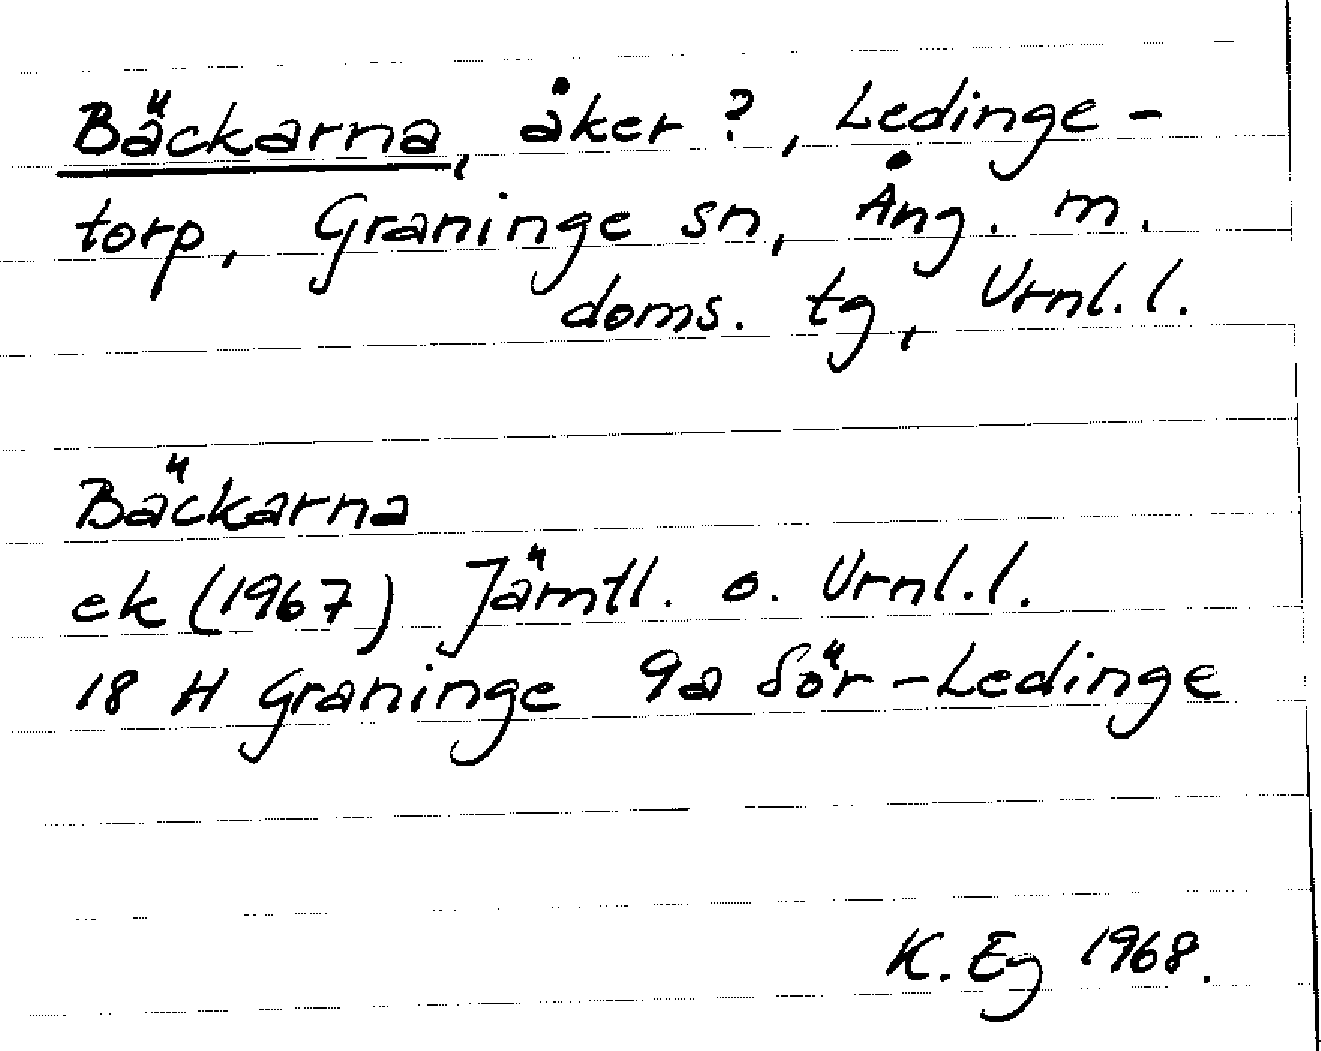 Bäckarna, åker ?, Ledinge-
torp, Graninge sn, Ång. m.
doms. tg, Vrnl. l.
Bäckarna
ek (1967) Jämtl. o. Vrnl. l.
18 H Graninge 9a Sör-Ledinge
K. Eg 1968.